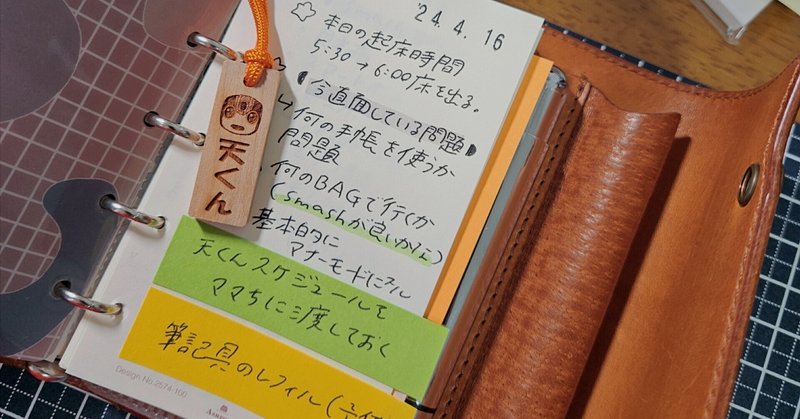 '24. 4. 16
本日の起床時間
5:30→6:00床を出る。
今直面している問題
何の手帳を使うか
問題
何のBAGで行くか
(smashが良いかな)
基本的に
マナーモードにスル
天くんスケジュールを
ママちに渡しておく
筆記具のレフィル(
天くん
Design No.2574-100